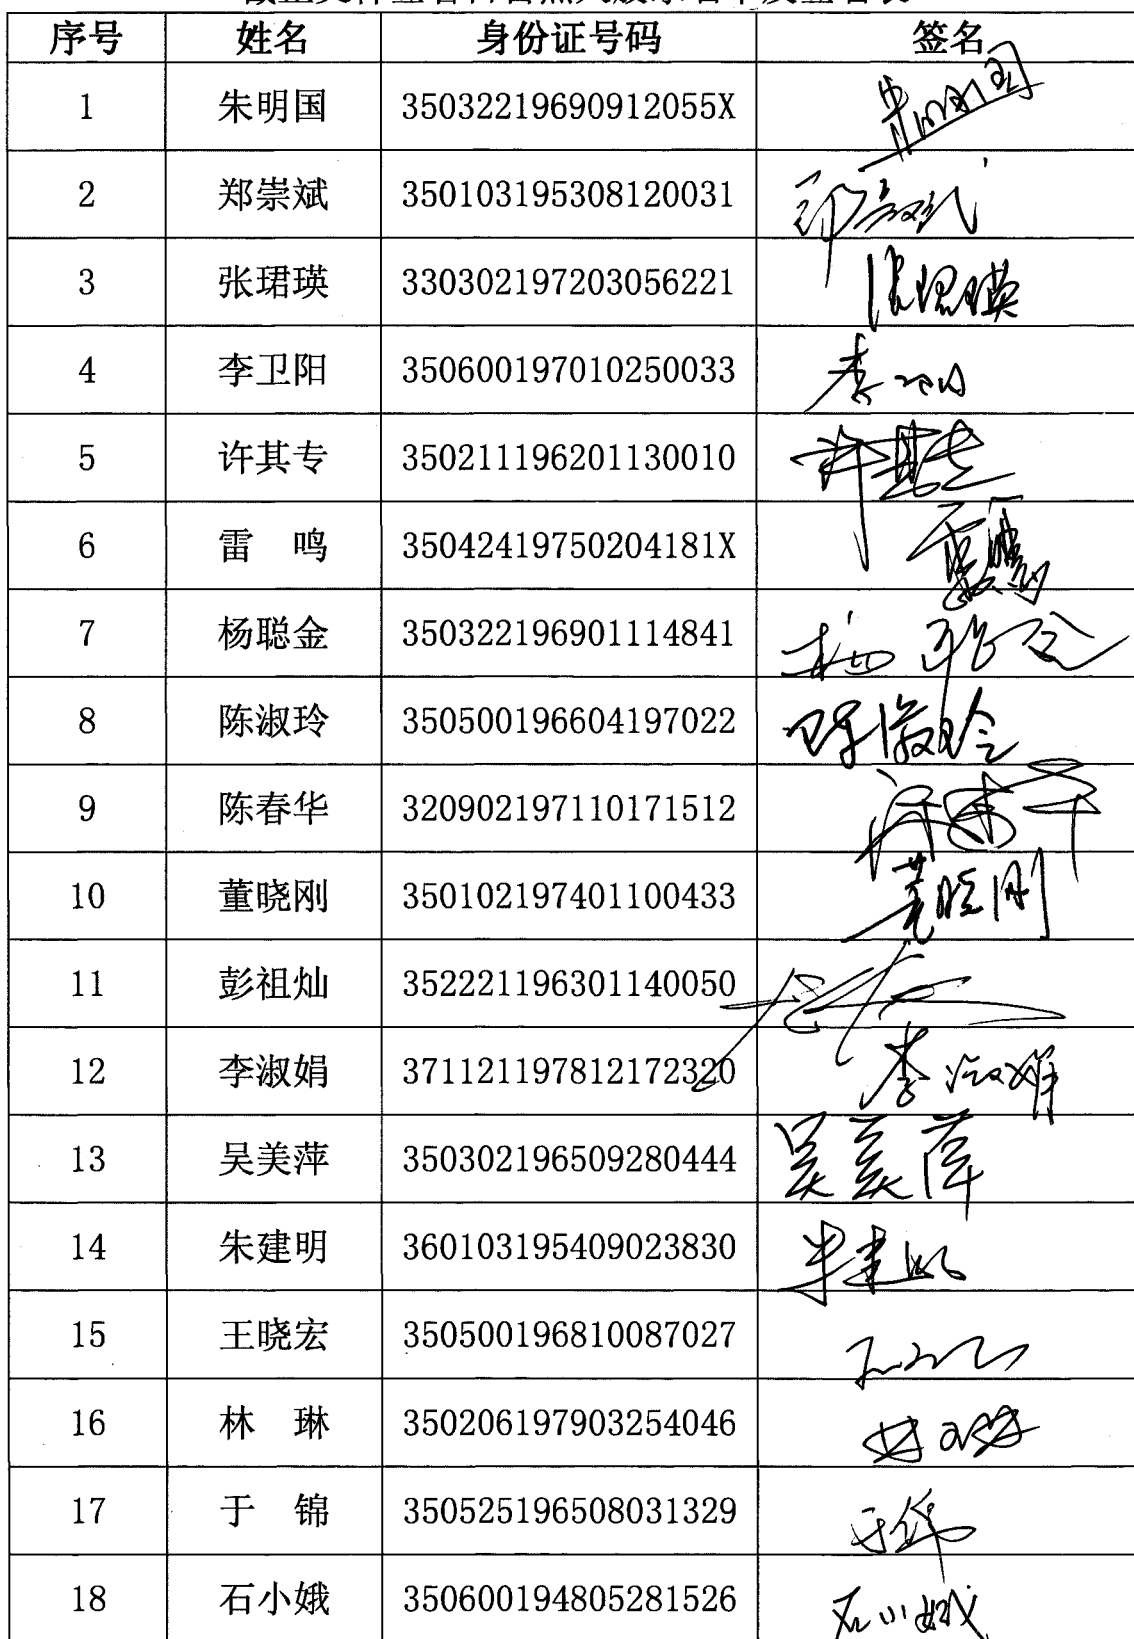 序号 姓名 身份证号码 签名
1 朱明国 35032219690912055X 朱明国
2 郑崇斌 350103195308120031
3 张珺瑛 330302197203056221 张珺瑛
4 李卫阳 350600197010250033 李卫阳
5 许其专 350211196201130010 许其专
6 雷 鸣 35042419750204181X 雷鸣
7 杨聪金 350322196901114841 杨聪金
8 陈淑玲 350500196604197022 陈淑玲
9 陈春华 320902197110171512
10 董晓刚 350102197401100433 董晓刚
11 彭祖灿 352221196301140050
12 李淑娟 371121197812172320 李淑娟
13 吴美萍 350302196509280444 吴美萍
14 朱建明 360103195409023830 朱建明
15 王晓宏 350500196810087027
16 林 琳 350206197903254046 林琳
17 于 锦 350525196508031329 于锦
18 石小娥 350600194805281526 石小娥